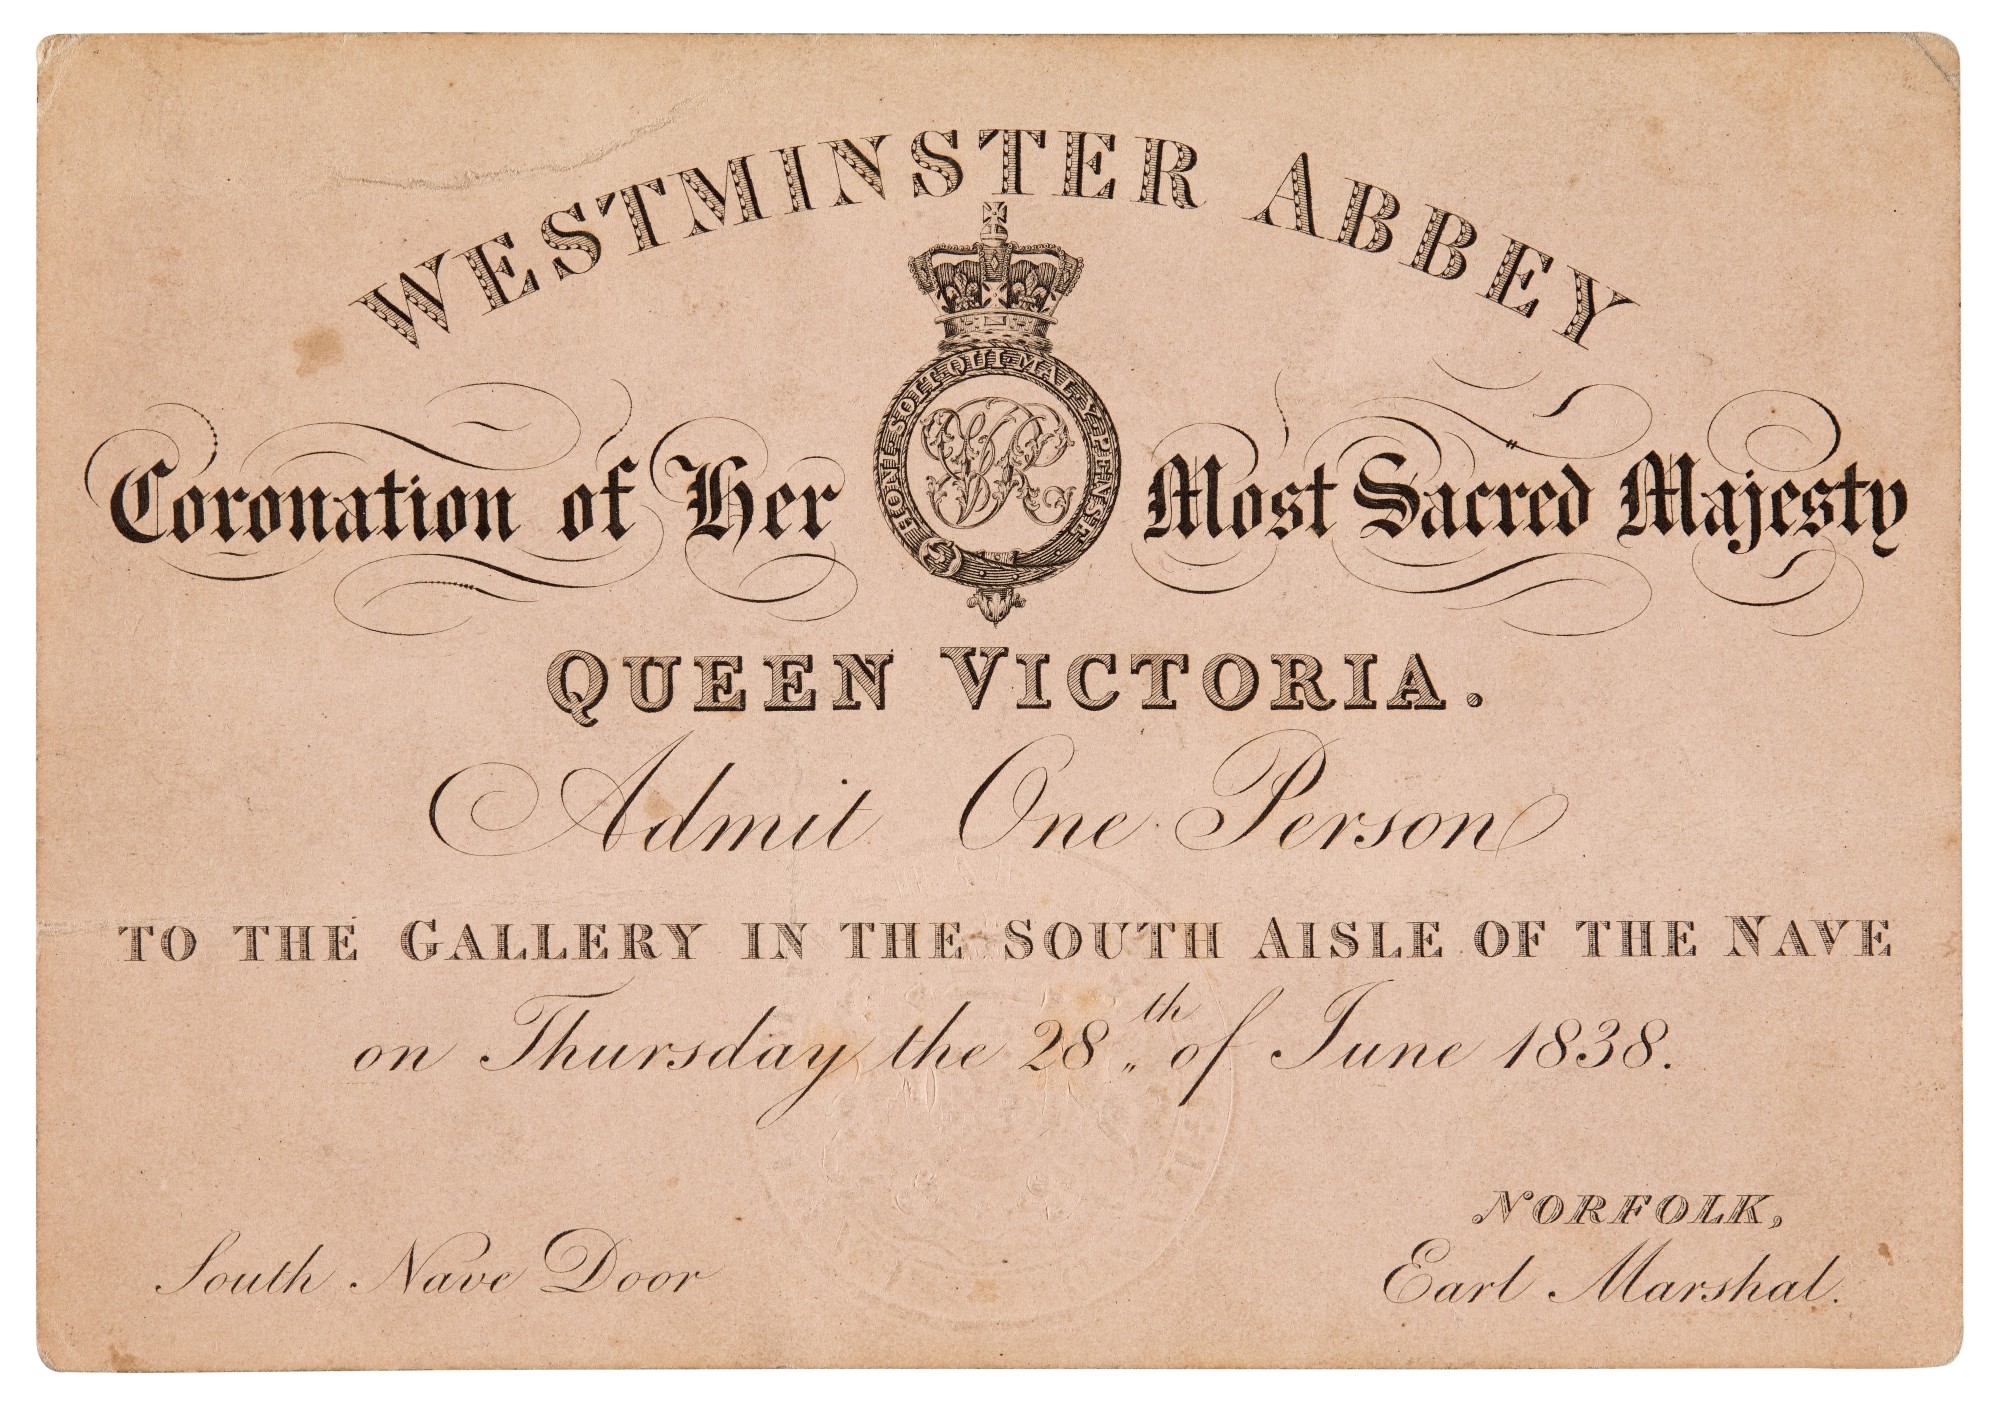 WESTMINSTER ABBEY
HONI·SOIT·QUI·MAL·Y·PENSE
VR
Coronation of Her Most Sacred Majesty
QUEEN VICTORIA.
Admit One Person
TO THE GALLERY IN THE SOUTH AISLE OF THE NAVE
on Thursday the 28th of June 1838.
NORFOLK,
South Nave Door Earl Marshal.